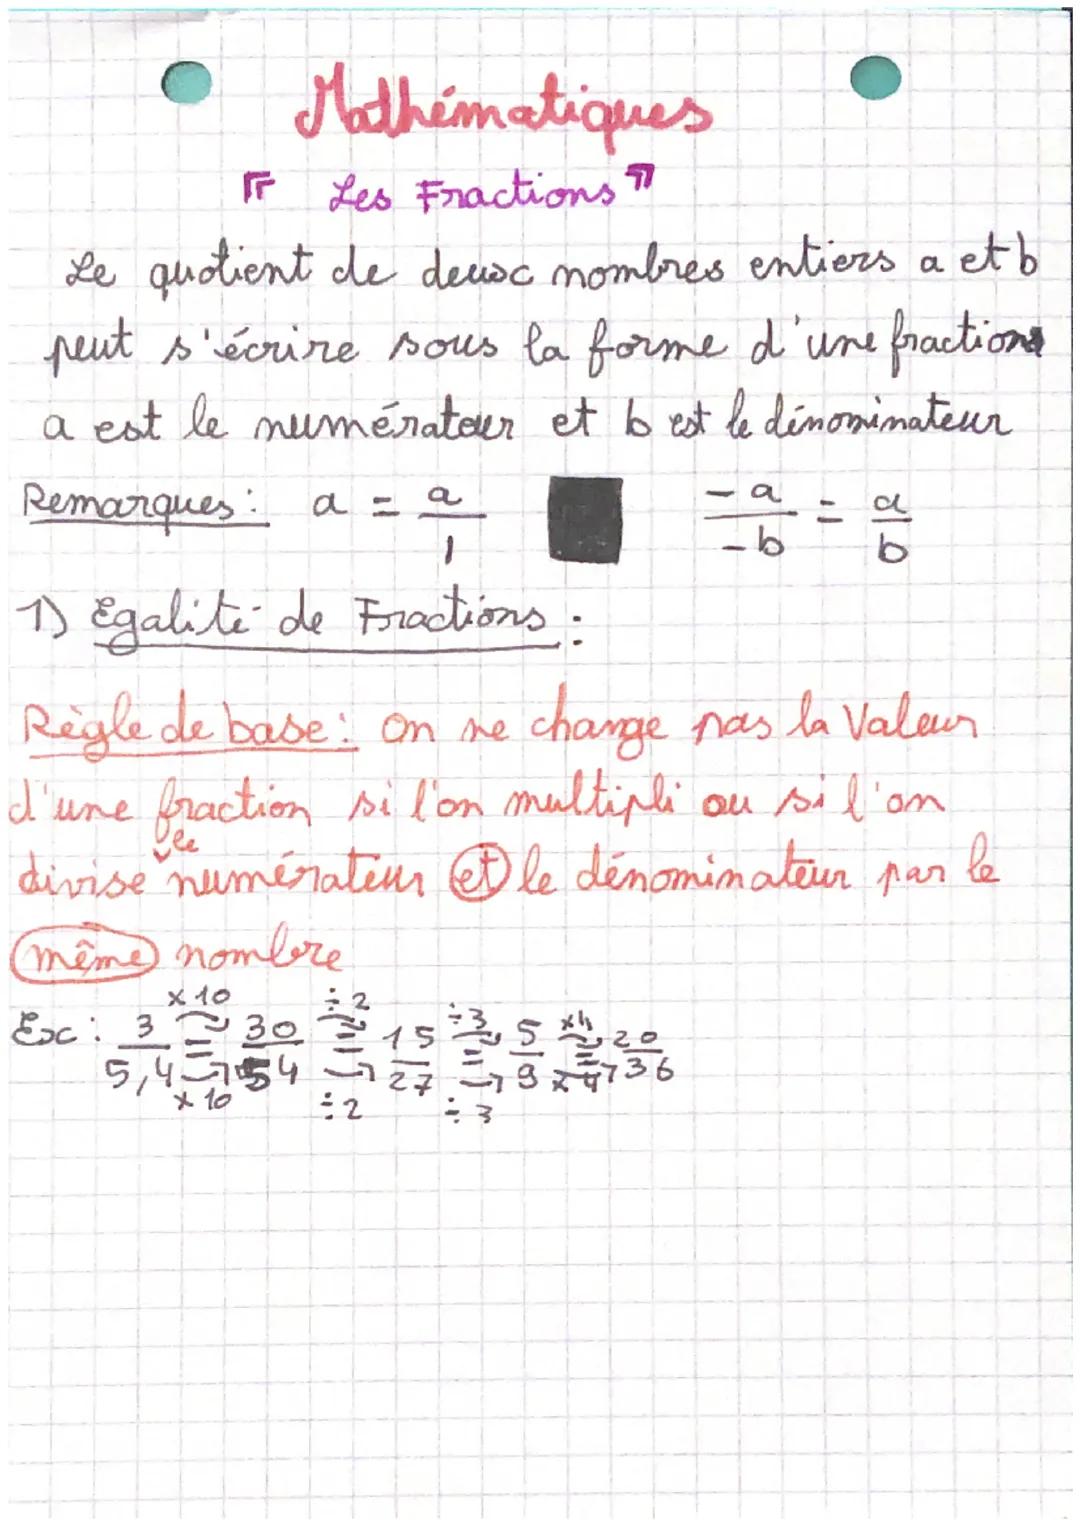 Mathématiques
" Les Fractions "
Le quotient de deux nombres entiers a et b
peut s'écrire sous la forme d'une fraction
a est le numérateur et b est le dénominateur
Remarques : a = a/1 -a/-b = a/b
1) Egalité de Fractions :
Règle de base : on ne change pas la Valeur
d'une fraction si l'on multipli ou si l'on
divise le numérateur et le dénominateur par le
même nombre
x 10 ÷ 2 ÷ 3 x4
Ex : 3/5,4 = 30/54 = 15/27 = 5/9 = 20/36
x 10 ÷ 2 ÷ 3 x 4